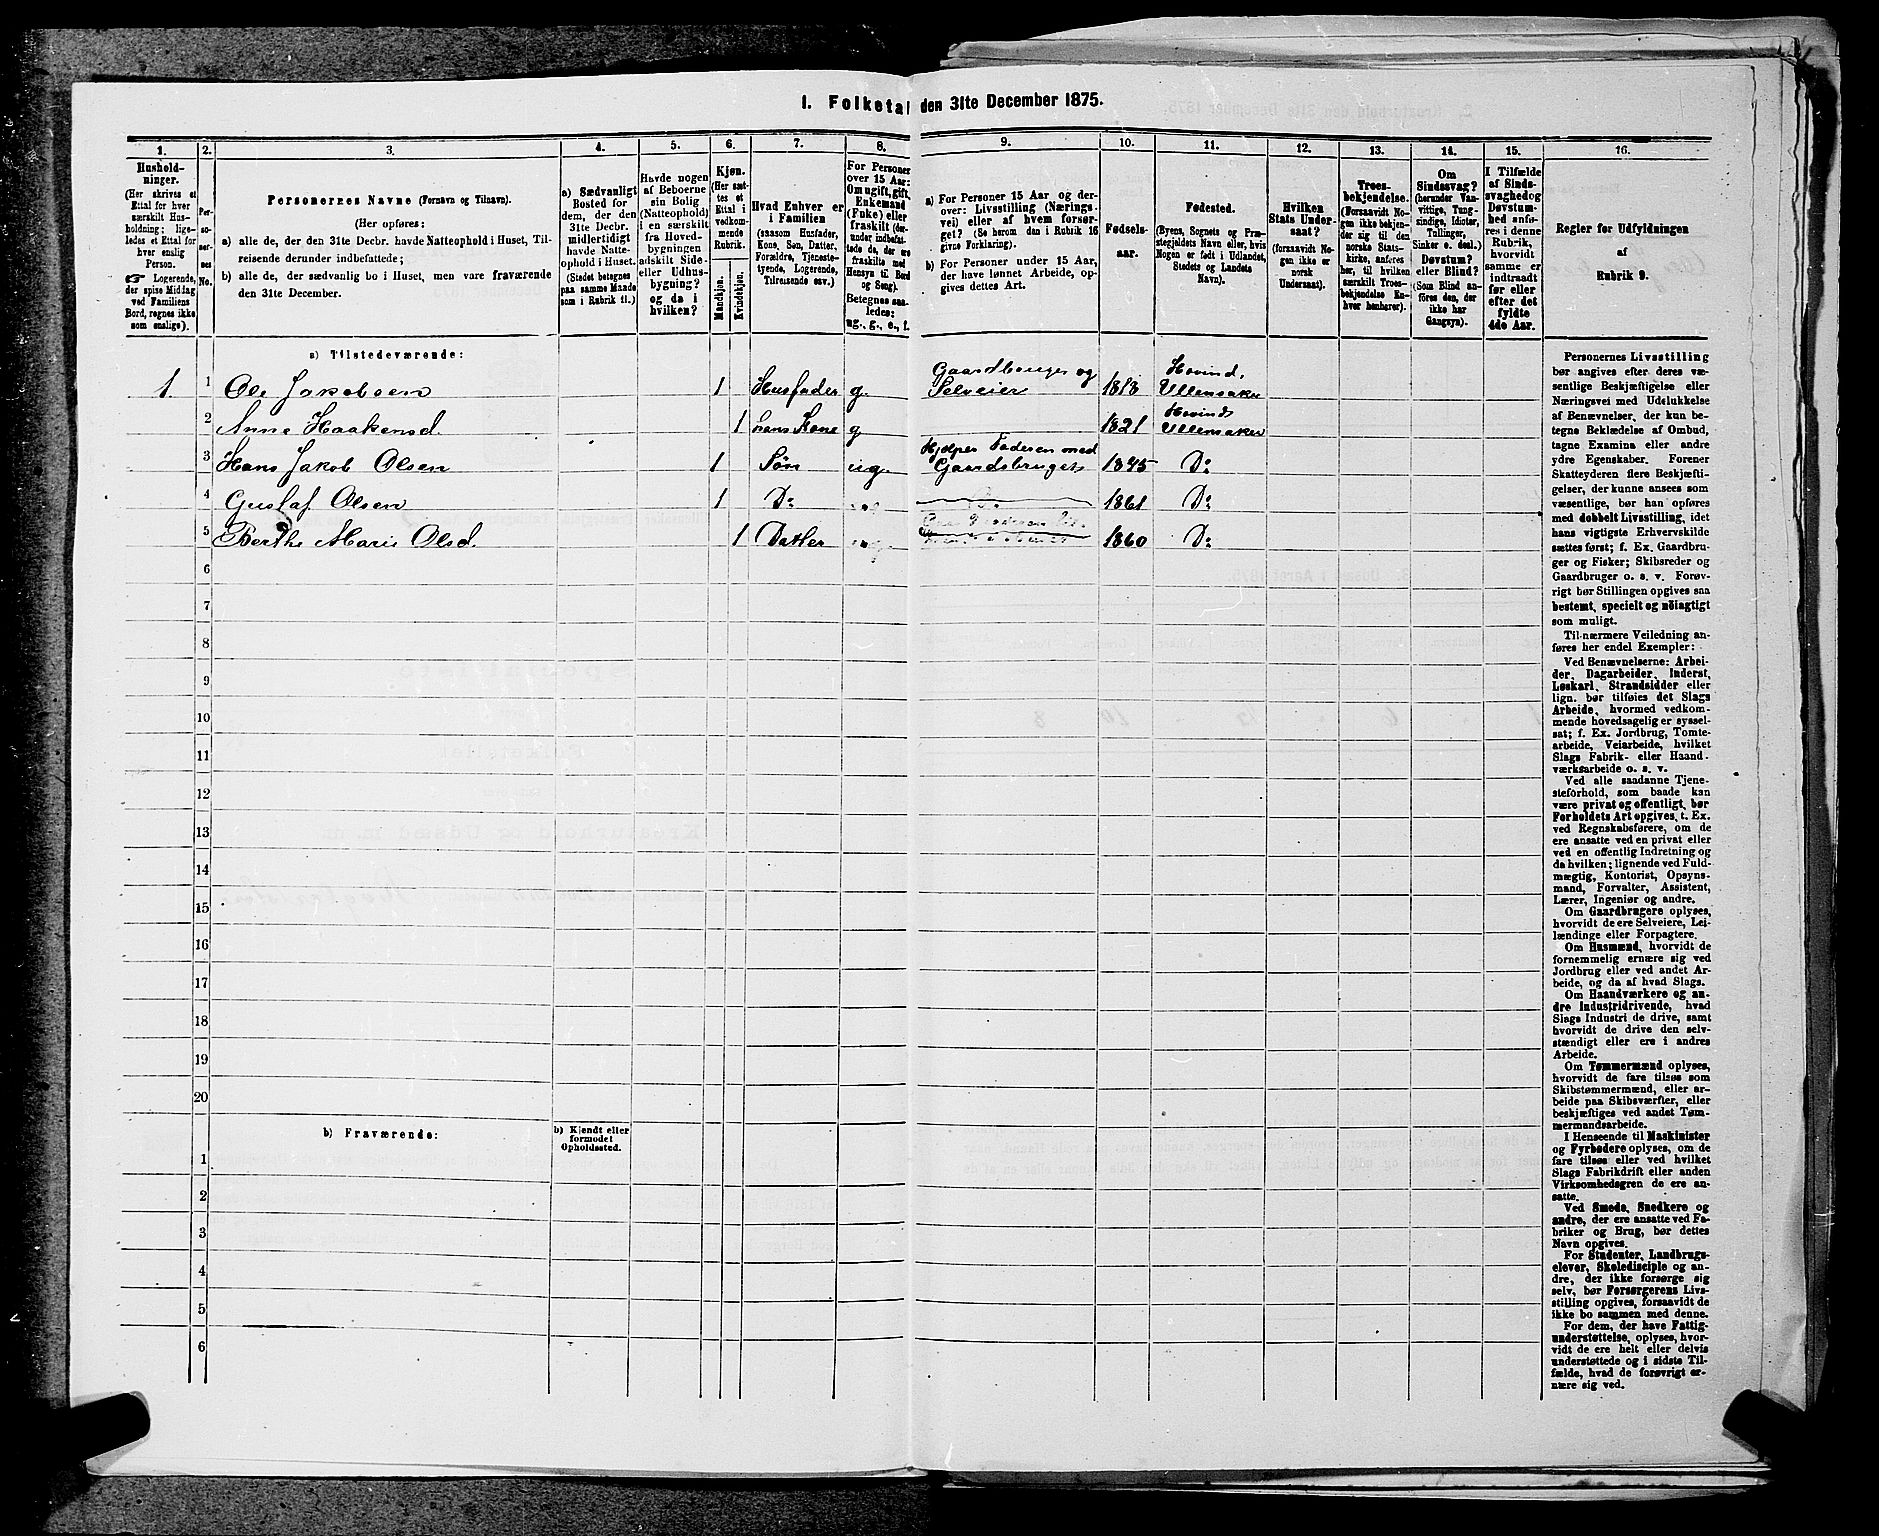 I. Folketal den 31te December 1875.
1.
Hushold-
ninger.
(Her skrives et
Ettal for hver
særskilt Hus-
holdning; lige-
ledes et Ettal for
hver enslig
Person.
☞ Logerende,
der spise Middag
ved Familiens
Bord, regnes ikke
som enslige).
2.
Per-
so-
ner-
nes
No.
3.
Personernes Navne (Fornavn og Tilnavn).
(Her opføres:
a) alle de, der den 31te Decbr. havde Natteophold i Huset, Til-
reisende derunder indbefattede;
b) alle de, der sædvanlig bo i Huset, men vare fraværende
den 31te December.
4.
a) Sædvanligt
Bosted for
dem, der den
31te Decbr.
midlertidigt
havde Natte-
ophold i Huset.
(Stedet betegnes
paa samme Maade
som i Rubrik 11.)
5.
Havde nogen
af Beboerne
sin Bolig
(Natteophold)
i en særskilt
fra Hoved-
bygningen
adskilt Side-
eller Udhus-
bygning?
og da i
hvilken?
6.
Kjøn.
(Her sæt-
tes et
Ettal i
vedkom-
mende
Rubrik.
Mandkjøn.
Kvindekjøn.
7.
Hvad Enhver er
i Familien
(saasom Husfader,
Kone, Søn, Datter,
Forældre, Tjeneste-
tyende, Logerende,
Tilreisende osv.)
8.
For Personer
over 15 Aar:
Om ugift, gift,
Enkemand
(Enke) eller
fraskilt (der-
under indbefat-
tede de, der ere
fraskilte med
Hensyn til Bord
og Seng).
Betegnes saa-
ledes:
ug., g., e., f.
9.
a) For Personer 15 Aar og der-
over: Livsstilling (Nærings-
vei) eller af hvem forsør-
get? (Se herom den i Rubrik 16
givne Forklaring).
b) For Personer under 15 Aar,
der have lønnet Arbeide, op-
gives dettes Art.
10.
Fødsels-
aar.
11.
Fødested.
(Byens, Sognets og Præ-
stegjeldets Navn eller, hvis
Nogen er født i Udlandet,
Stedets og Landets
Navn).
12.
Hvilken
Stats Under-
saat?
(forsaavidt No-
gen ikke er
norsk
Undersaat).
13.
Troes-
bekjendelse.
(Forsaavidt No-
gen ikke bekjen-
der sig til den
norske Stats-
kirke, anføres
her, til hvilken
særskilt Troes-
bekjendelse En-
hver henhører).
14.
Om
Sindssvag?
(herunder Van-
vittige, Tung-
sindige, Idioter,
Tullinger,
Sinker o. desl.)
Døvstum?
eller Blind?
(Som Blind an-
føres den, der
ikke har
Gangsyn).
15.
I Tilfælde
af Sinds-
svaghed og
Døvstum-
hed anfø-
res i denne
Rubrik,
hvorvidt
samme er
indtraadt
før eller
efter det
fyldte
4de Aar.
16.
Regler for Udfyldningen
af
Rubrik 9.
a) Tilstedeværende:
1. 1 Ole Jakobsen 1 Husfader g. Gaardbruger og Selveier 1813 Hovind, Ullensaker
2 Anne Haakensd. 1 hans Kone g 1821 Hovinds Ullensaker
3 Hans Jakob Olsen 1 Søn ug. Hjelper Faderen med Gaardsbruget 1845 Do
4 Gustaf Olsen 1 Do 1861 Do
5 Berthe Marie Olsd. 1 Datter 1860 Do
6
7
8
9
10
11
12
13
14
15
16
17
18
19
20
b) Fraværende:
b) Kjendt eller
formodet
Opholdssted.
1
2
3
4
5
6
Personernes Livsstilling
bør angives efter deres væ-
sentlige Beskjæftigelse eller
Næringsvei med Udelukkelse
af Benævnelser, der kun be-
tegne Beklædelse af Ombud,
tagne Examina eller andre
ydre Egenskaber. Forener
Skatteyderen flere Beskjæfti-
gelser, der kunne ansees som
væsentlige, bør han opføres
med dobbelt Livsstilling, idet
hans vigtigste Erhvervskilde
sættes først; f. Ex. Gaardbru-
ger og Fisker; Skibsreder og
Gaardbruger o. s. v. Forøv-
rigt bør Stillingen opgives saa
bestemt, specielt og nøiagtigt
som muligt.
Til nærmere Veiledning an-
føres her endel Exempler:
Ved Benævnelserne: Arbei-
der, Dagarbeider, Inderst,
Løskarl, Strandsidder eller
lign. bør tilføies det Slags
Arbeide, hvormed vedkom-
mende hovedsagelig er syssel-
sat; f. Ex. Jordbrug, Tomte-
arbeide, Veiarbeide, hvilket
Slags Fabrik- eller Haand-
værksarbeide o. s. v.
Ved alle saadanne Tjene-
steforhold, som baade kan
være privat og offentligt, bør
Forholdets Art opgives, t. Ex.
ved Regnskabsførere, om de
ere ansatte ved en privat eller
ved en offentlig Indretning og
da hvilken; lignende ved Fuld-
mægtig, Kontorist, Opsyns-
mand, Forvalter, Assistent,
Lærer, Ingeniør og andre.
Om Gaardbrugere oplyses,
hvorvidt de ere Selveiere, Lei-
lændinge eller Forpagtere.
Om Husmænd, hvorvidt de
fornemmelig ernære sig ved
Jordbrug eller ved andet Ar-
beide, og da af hvad Slags.
Om Haandværkere og an-
dre Industridrivende, hvad
Slags Industri de drive, samt
hvorvidt de drive den selv-
stændigt eller ere i andres
Arbeide.
Om Tømmermænd oplyses,
hvorvidt de fare tilsøs som
Skibstømmermænd, eller ar-
beide paa Skibsværfter, eller
beskjæftiges ved andet Tøm-
mermandsarbeide.
I Henseende til Maskinister
og Fyrbødere oplyses, om de
fare tilsøs eller ved hvilket
Slags Fabrikdrift eller anden
Virksomhedsgren de ere an-
satte.
Ved Smede, Snedkere og
andre, der ere ansatte ved Fa-
briker og Brug, bør dettes
Navn opgives.
For Studenter, Landbrugs-
elever, Skoledisciple og an-
dre, der ikke forsørge sig
selv, bør Forsørgerens Livs-
stilling opgives, forsaavidt de
ikke bo sammen med denne.
For dem, der have Fattig-
understøttelse, oplyses, hvor-
vidt de ere helt eller delvis
understøttede og i sidste Til-
fælde, hvad de forøvrigt er-
nære sig ved.